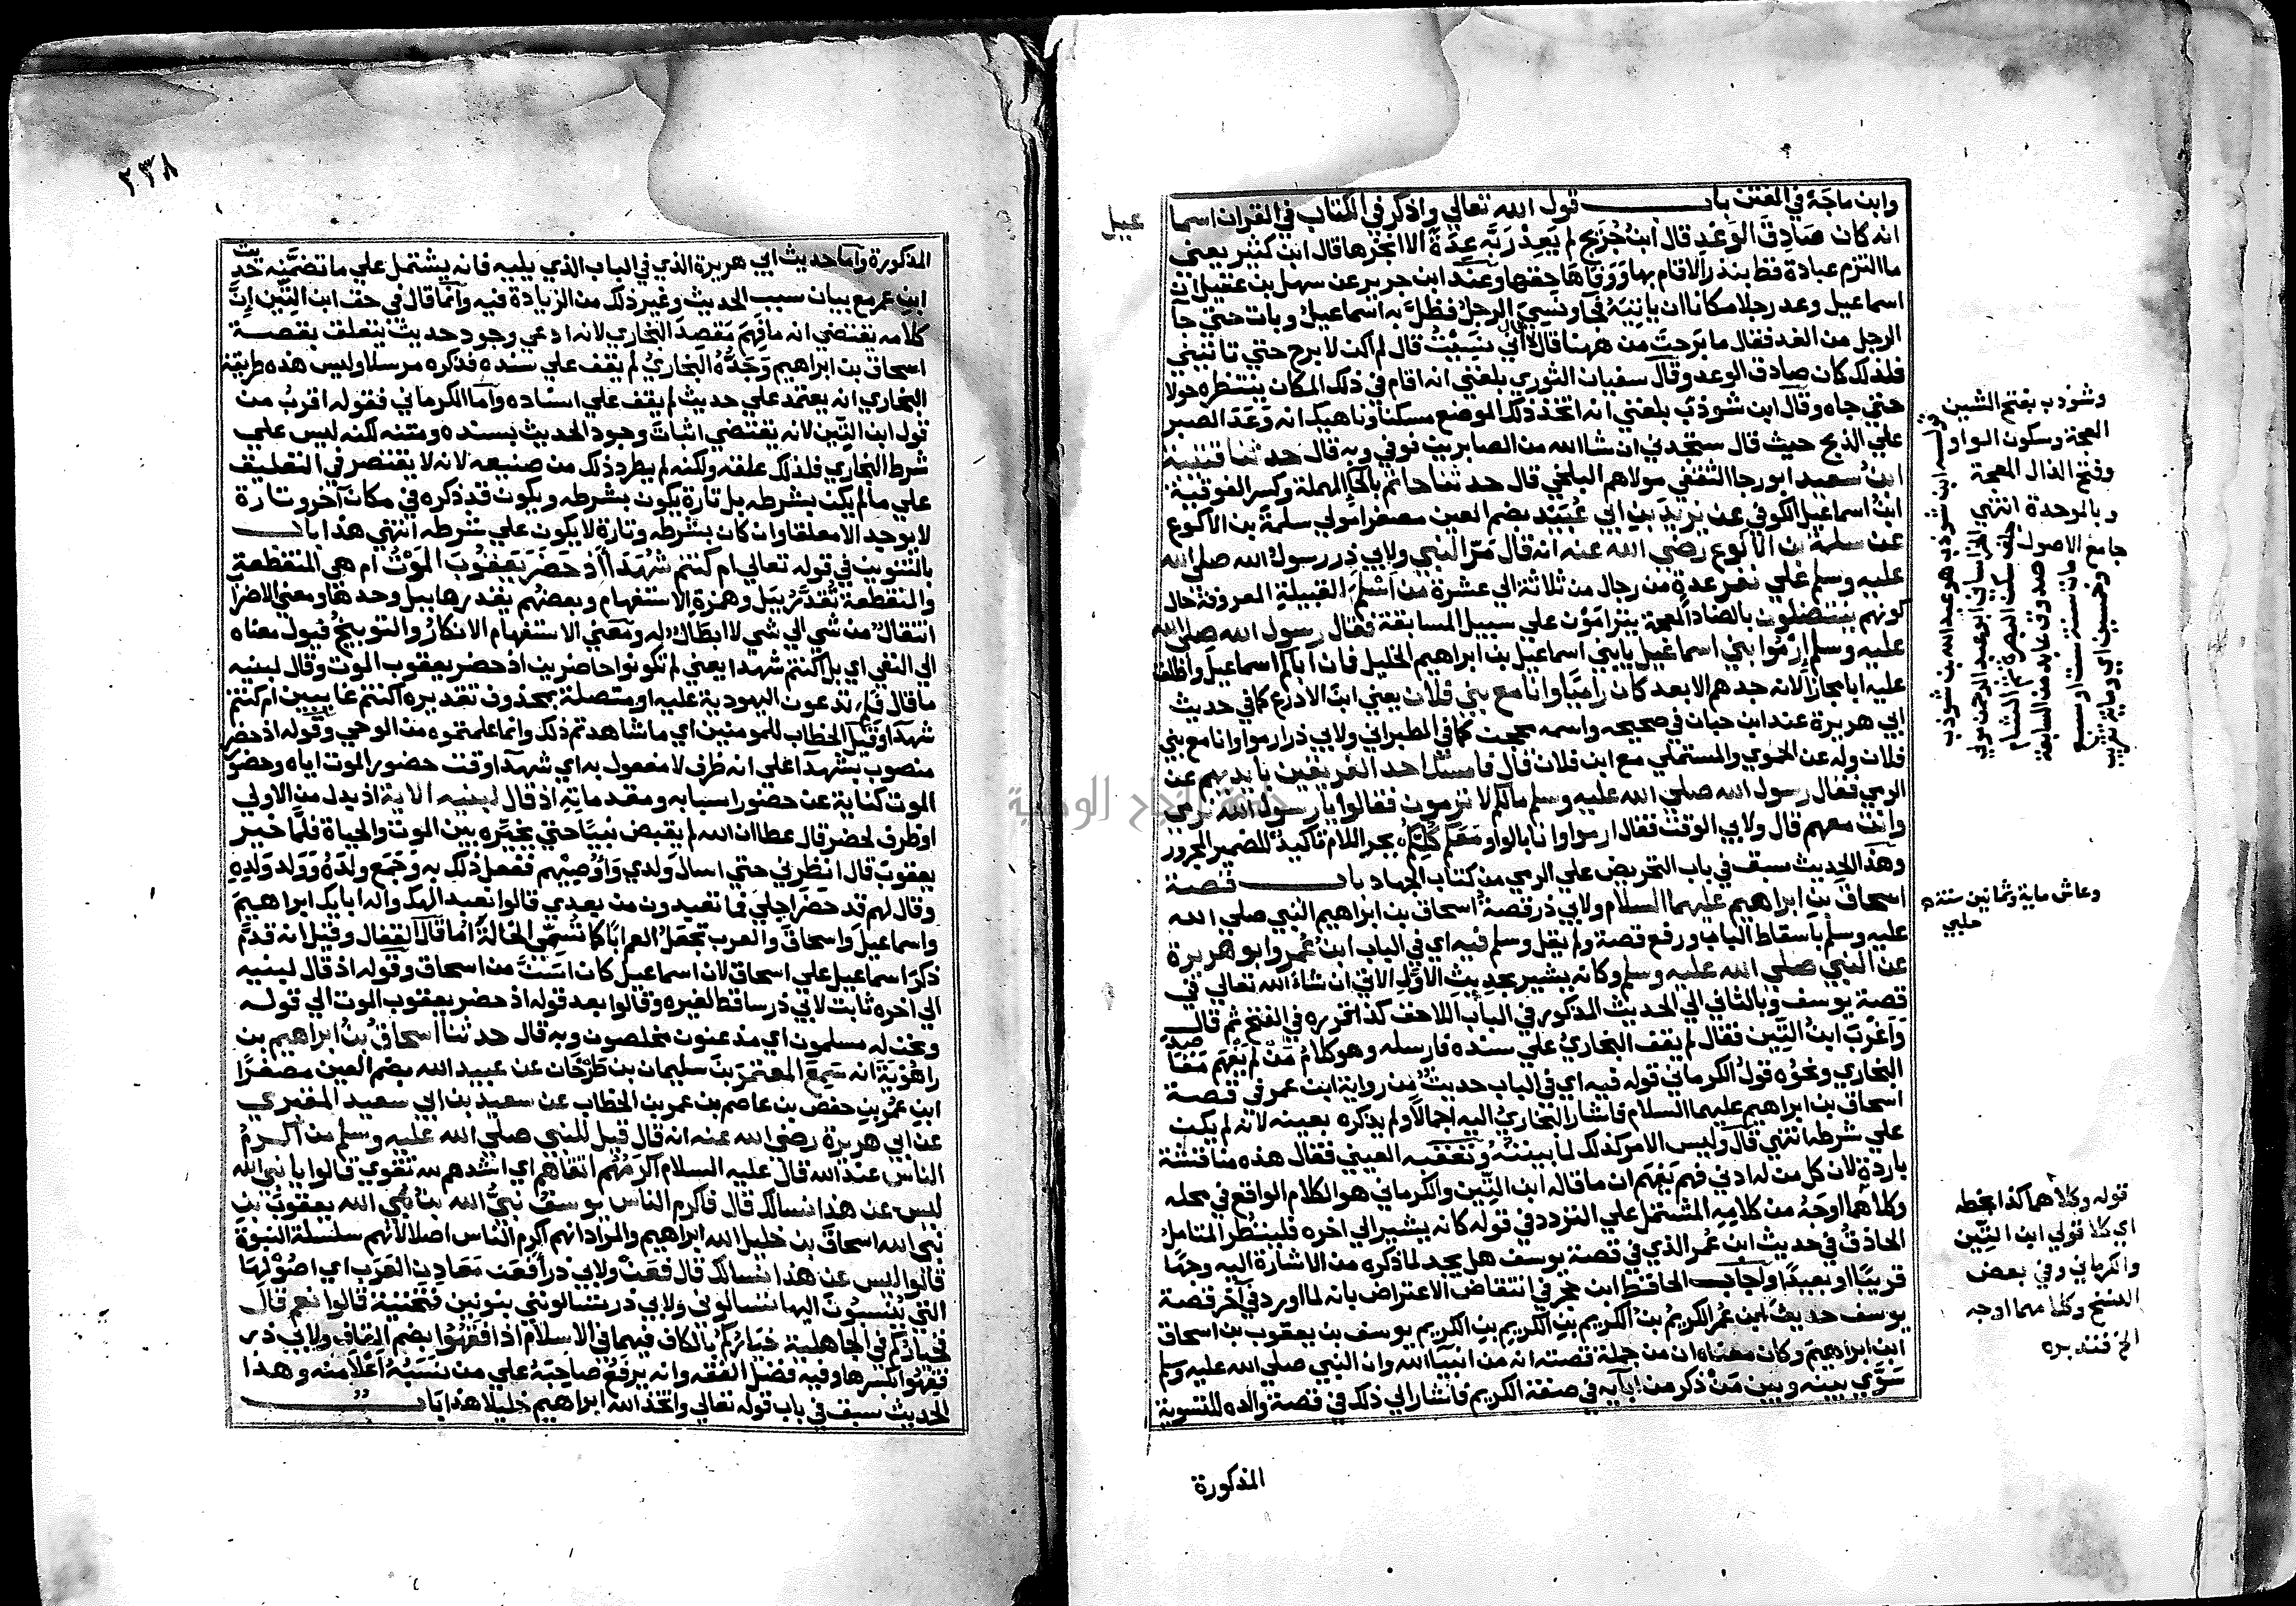 وابن ماجة في الفتن باب قول الله تعالى واذكر في الكتاب في القران اسما
عيل
انه كان صادق الوعد قال ابن جريج لم يعد ربه عدة الا انجزها قال ابن كثير يعني
ما التزم عبادة قط بنذر الا قام بها ووفاها حقها وعند ابن جرير عن سهل بن عقيل ان
اسماعيل وعد رجلا مكانا ان ياتيه فجا ونسي الرجل فظل به اسماعيل وبات حتي جا
الرجل من الغد فقال ما برحت من ههنا قال لا قال اني نسيت قال لم اكن لابرح حتي تاتيني
فلذلك كان صادق الوعد وقال سفيان الثوري بلغني انه اقام في ذلك المكان ينتظره حولا
حتي جاه وقال ابن شوذب بلغني انه اتخذ ذلك الموضع مسكنا وناهيك انه وعد الصبر
علي الذبح حيث قال ستجدني ان شا الله من الصابرين نوفي وبه قال حد ثنا قتيبة
ابن سعيد ابو رجا الثقفي مولاهم البلخي قال حدثنا حاتم بالحا المهملة وكسر الفوقية
ابن اسماعيل الكوفي عن يزيد بن ابي عبيد بضم العين مصغرا مولي سلمة بن الاكوع
عن سلمة بن الاكوع رضي الله عنه انه قال مر النبي ولابي ذر رسول الله صلي الله
عليه وسلم علي نفر عدة من رجال من ثلاثة الي عشرة من اسلم القبيلة المعروفة حال
كونهم ينتضلون بالضاد المعجمة يترامون علي سبيل المسابقة فقال رسول الله صلي الله
عليه وسلم ارموا بني اسماعيل يا بني اسماعيل بن ابراهيم الخليل فان اباكم اسماعيل واطلق
عليه ابا مجازا لانه جدهم الابعد كان راميا وانا مع بني فلان يعني ابن الادرع كما في حديث
ابي هريرة عند ابن حبان في صحيحه واسمه محجن كما في الطبراني ولابي ذر ارموا وانا مع بني
فلان وله عن الحموي والمستملي مع ابن فلان قال فامسك احد الفريقين بايديهم عن
الرمي فقال رسول الله صلي الله عليه وسلم ما لكم لا ترمون فقالوا يا رسول الله نرمي
وانت معهم قال ولابي الوقت فقال ارموا وانا بالواو معكم كلكم بجر اللام تاكيد للضمير المجرور
وهذا الحديث سبق في باب التحريض علي الرمي من كتاب الجهاد باب قصة
اسحاق بن ابراهيم عليهما السلام ولابي ذر قصة اسحاق بن ابراهيم النبي صلي الله
عليه وسلم باسقاط الباب ورفع قصة ولم يقل وسلم فيه اي في الباب ابن عمر وابو هريرة
عن النبي صلي الله عليه وسلم وكانه يشير بحديث الاول الاتي ان شاء الله تعالي في
قصة يوسف وبالثاني الي الحديث المذكور في الباب اللاحق كذا قرره في الفتح ثم قال
واغرب ابن التين فقال لم يقف البخاري علي سنده فارسله وهو كلام من لم يفهم مقا
صد
البخاري ونحوه قول الكرماني قوله فيه اي في الباب حديث من رواية ابن عمر في قصة
اسحاق بن ابراهيم عليهما السلام فاشار البخاري اليه اجمالا ولم يذكره بعينه لانه لم يكن
علي شرطه انتهي قال وليس الامر كذلك لما بينته وتعقبه العيني فقال هذه مناقشة
باردة لان كل من له ادني فهم يفهم ان ما قاله ابن التين والكرماني هو الكلام الواقع في محله
وكلاهما اوجه من كلامه المشتمل علي التردد في قوله كانه يشير الي اخره فلينظر المتامل
الحاذق في حديث ابن عمر الذي في قصة يوسف هل يجد لما ذكره من الاشارة اليه وجها
قريبا او بعيدا واجاب الحافظ ابن حجر في انتقاض الاعتراض بانه لما اورد في آخر قصة
يوسف حديث ابن عمر الكريم بن الكريم بن الكريم بن الكريم يوسف بن يعقوب بن اسحاق
ابن ابراهيم وكان معناه ان من جملة قصته انه من انبيآ الله وان النبي صلي الله عليه وسلم
سوي بينه وبين من ذكر من ابآيه في صفة الكريم فاشار الي ذلك في قصة والده للتسوية
المذكورة
وشوذب بفتح الشين
المعجمة وسكون الواو
وفتح الذال المعجمة
وبالموحدة انتهي
جامع الاصول
قوله ابن شوذب هو عبد الله بن شوذب
الخراساني ابو عبد الرحمن مولي
سكن البصرة ثم الشام
صدوق عابد من السابعة
مات سنة ست او سبع
وخمسين اي وماية تقريب
وعاش ماية وثمانين سنة
حلبي
قوله وكلاهما كذا بخطه
اي كلا قولي ابن التين
والكرماني وفي بعض
النسخ وكلامهما اوجه
الخ فتدبره
٢٣٨
المذكورة واما حديث ابي هريرة الذي في الباب الذي يليه فانه يشتمل علي ما تضمنه حديث
ابن عمر مع بيان سبب الحديث وغير ذلك من الزيادة فيه وانما قال في حق ابن التين ان
كلامه يقتضي انه ما فهم مقصد البخاري لانه ادعي وجود حديث يتعلق بقصة
اسحاق بن ابراهيم وجده البخاري لم يقف علي سنده فذكره مرسلا وليس هذه طريقة
البخاري انه يعتمد علي حديث لم يقف علي اسناده واما الكرماني فقوله اقرب من
قول ابن التين لانه يقتضي اثبات وجود الحديث بسنده ومتنه لكنه ليس علي
شرط البخاري فلذلك علقه ولكنه لم يطرد ذلك من صنيعه لانه لا يقتصر في التعليق
علي ما لم يكن بشرطه بل تارة يكون بشرطه ويكون قد ذكره في مكان آخر وتارة
لا يوجد الا معلقا وان كان بشرطه وتارة لا يكون علي شرطه انتهي هذا باب
بالتنوين في قوله تعالي ام كنتم شهدآ اذ حضر يعقوب الموت ام هي المنقطعة
والمنقطعة تقدر ببل وهمزة الاستفهام وبعضهم يقدرها ببل وحدها ومعني الاضرا
انتقال من شي الي شي لا ابطال له ومعني الاستفهام الانكار والتوبيخ فيول معناه
الي النفي اي بل اكنتم شهدا يعني لم تكونوا حاضرين اذ حضر يعقوب الموت وقال لبنيه
ما قال فلم تدعون اليهودية عليه او متصلة بمحذوف تقديره اكنتم غايبين ام كنتم
شهدآ وقيل الخطاب للمومنين اي ما شاهدتم ذلك وانما علمتموه من الوحي وقوله اذ حضر
منصوب بشهدآ علي انه ظرف لا مفعول به اي شهدآ وقت حضور الموت اياه وحضور
الموت كناية عن حضور اسبابه ومقدماته اذ قال لبنيه الاية اذ بدل من الاولي
او ظرف لحضر قال عطا ان الله لم يقبض نبيا حتي يخيره بين الموت والحياة فلما خير
يعقوب قال انظرني حتي اسال ولدي واوصيهم ففعل ذلك به وجمع ولده وولد ولده
وقال لهم قد حضر اجلي فما تعبدون من بعدي قالوا نعبد الهك واله ابايك ابراهيم
واسماعيل واسحاق والعرب تجعل العم ابا كما تسمي الخالة اما قال القفال وقيل انه قدم
ذكر اسماعيل علي اسحاق لان اسماعيل كان اسن من اسحاق وقوله اذ قال لبنيه
الي اخره ثابت لابي ذر ساقط لغيره وقالوا بعد قوله اذ حضر يعقوب الموت الي قوله
ونحن له مسلمون اي مذعنون مخلصون وبه قال حدثنا اسحاق بن ابراهيم بن
راهويه انه سمع المعتمر بن سليمان بن طرخان عن عبيد الله بضم العين مصغرا
ابن عمر بن حفص بن عاصم بن عمر بن الخطاب عن سعيد بن ابي سعيد المقبري
عن ابي هريرة رضي الله عنه انه قال قيل للنبي صلي الله عليه وسلم من اكرم
الناس عند الله قال عليه السلام اكرمهم اتقاهم اي اشدهم لله تقوي قالوا يا نبي الله
ليس عن هذا نسالك قال فاكرم الناس يوسف نبي الله بن نبي الله يعقوب بن
نبي الله اسحاق بن خليل الله ابراهيم والمراد انهم اكرم الناس اصلا لانهم سلسلة النبوة
قالوا ليس عن هذا نسالك قال فعن ولابي ذر افعن معادن العرب اي اصولها
التي ينسبون اليها تسالوني ولابي ذر تسالونني بنونين فتحتية قالوا نعم قال
فخياركم في الجاهلية خياركم بالكاف فيهما في الاسلام اذا فقهوا بضم القاف ولابي ذر
فقهوا بكسرها وفيه فضل الفقه وانه يرفع صاحبه علي من نسبه اعلا منه وهذا
الحديث سبق في باب قوله تعالي واتخذ الله ابراهيم خليلا هذا باب
جامعة النجاح الوطنية